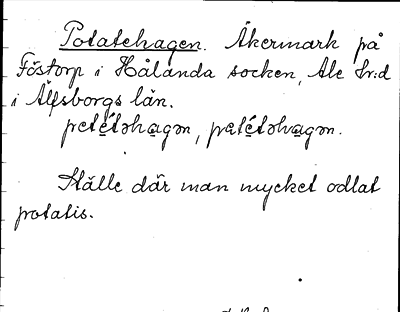 Potatehagen. Åkermark på
Föstorp i Hålanda socken, Ale hr:d
i Älfsborgs län.
petétəhagən, patétəhvagən.
Ställe där man mycket odlat
potatis.